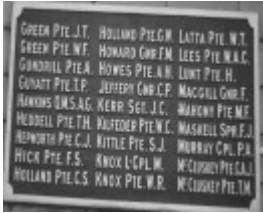 GREEN PTE. J.T.
GREEN PTE. W.F.
GUNDRILL PTE. A.
GUYATT PTE. T.P.
HAWKINS Q.M.S. A.G.
HEDDELL PTE. T.H.
HEPWORTH PTE. C.J.
HICK PTE. F.S.
HOLLAND PTE. C.S.
HOLLAND PTE. G.M.
HOWARD GNR. F.M.
HOWES PTE. A.H.
JEFFERY GNR. C.P.
KERR SGT. J.C.
KILFEDER PTE. W.C.
KITTLE PTE. S.J.
KNOX L-CPL. M.
KNOX PTE. W.R.
LATTA PTE. W.T.
LEES PTE. W.A.C.
LUNT PTE. H.
MACGILL GNR. F.
MAHONY PTE. M.F.
MASKELL SPR. F.J.
MURRAY CPL. P.A.
MCCLUSKEY PTE. G.A.J.
MCCLUSKEY PTE. T.M.